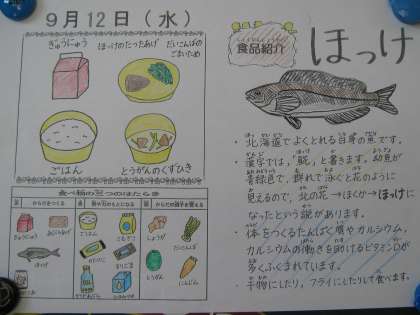 9月12日（水）
ぎゅうにゅう
ほっけのたつたあげ
だいこんばの
ごまいため
ごはん
とうがんのくずひき
食べ物の三つのはたらき
赤 からだをつくる
黄 熱や力のもとになる
緑 からだの調子を整える
ぎゅうにゅう
あぶらあげ
ほっけ
ごはん
でんぷん
かたくりこ
さとう
ごま
しょうが
だいこんば
とうがん
にんじん
食品紹介
ほっけ
・北海道でよくとれる白身の魚です。
漢字では、「𩸽」と書きます。幼魚が
青緑色で、群れて泳ぐと花のように
見えるので、北の花→ほくか→ほっけに
なったという説があります。
・体をつくるたんぱく質やカルシウム、
カルシウムの働きを助けるビタミンDが
多くふくまれています。
・干物にしたり、フライにしたりして食べます。